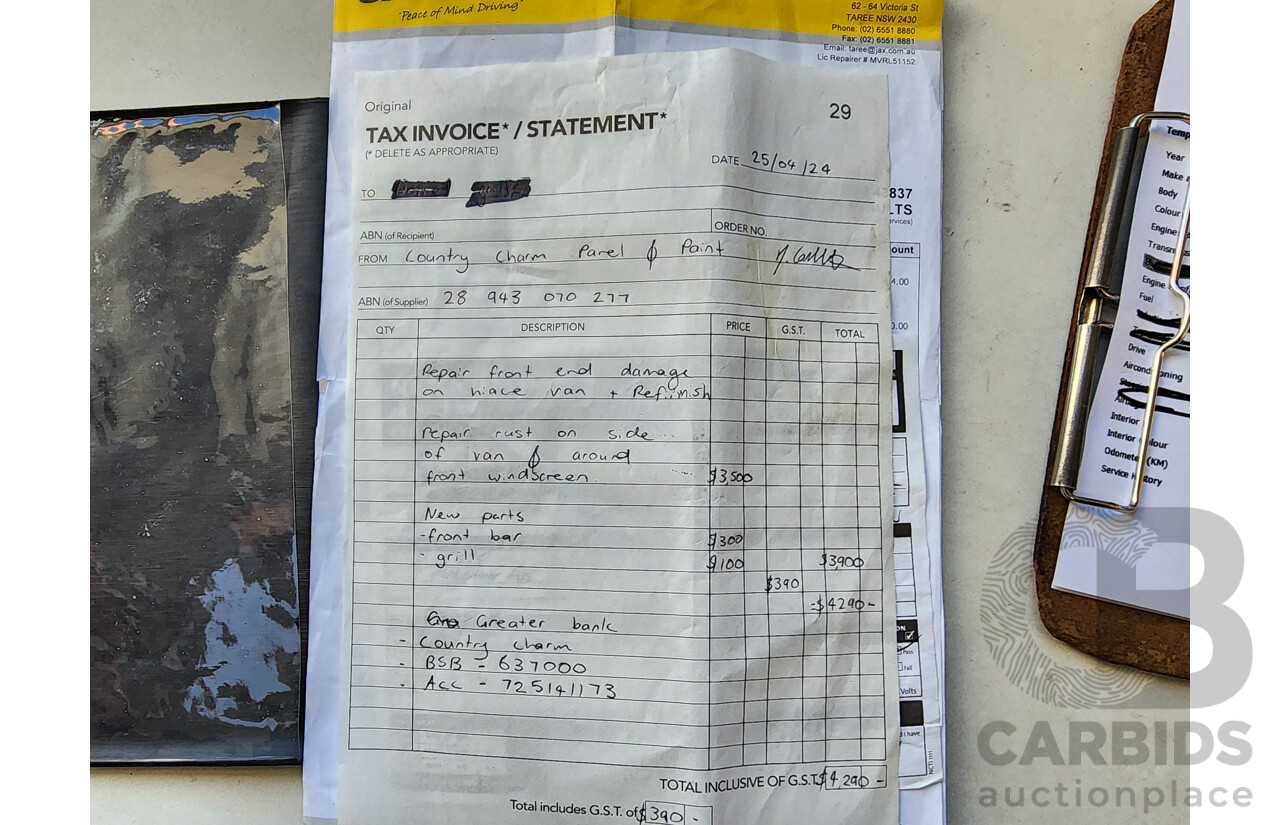 "Peace of Mind Driving"
62 - 64 Victoria St
TAREE NSW 2430
Phone: (02) 6551 8880
Fax: (02) 6551 8881
Email: taree@jax.com.au
Lic Repairer # MVRL51152
Original
29
TAX INVOICE* / STATEMENT*
(* DELETE AS APPROPRIATE)
DATE 25/04/24
TO
ABN (of Recipient)
ORDER NO.
FROM Country Charm Panel & Paint
ABN (of Supplier) 28 943 070 277
QTY DESCRIPTION PRICE G.S.T. TOTAL
Repair front end damage
on hiace van + Refinish
Repair rust on side
of van & around
front windscreen $3,500
New parts
-front bar $300
- grill $100 $3,900
$390
-$4290-
Greater bank
- Country charm
- BSB - 637000
- Acc - 725141173
TOTAL INCLUSIVE OF G.S.T. $4,290 -
Total includes G.S.T. of $390 -
837
LTS
rvices)
ount
4.00
0.00
ON
Pass
Fail
Volts
I have
NCT1111
Temp
Year
Make &
Body
Colour
Engine
Transm
Engine
Fuel
Drive
Airconditioning
Interior
Interior Colour
Odometer (KM)
Service History
CARBIDS
auctionplace